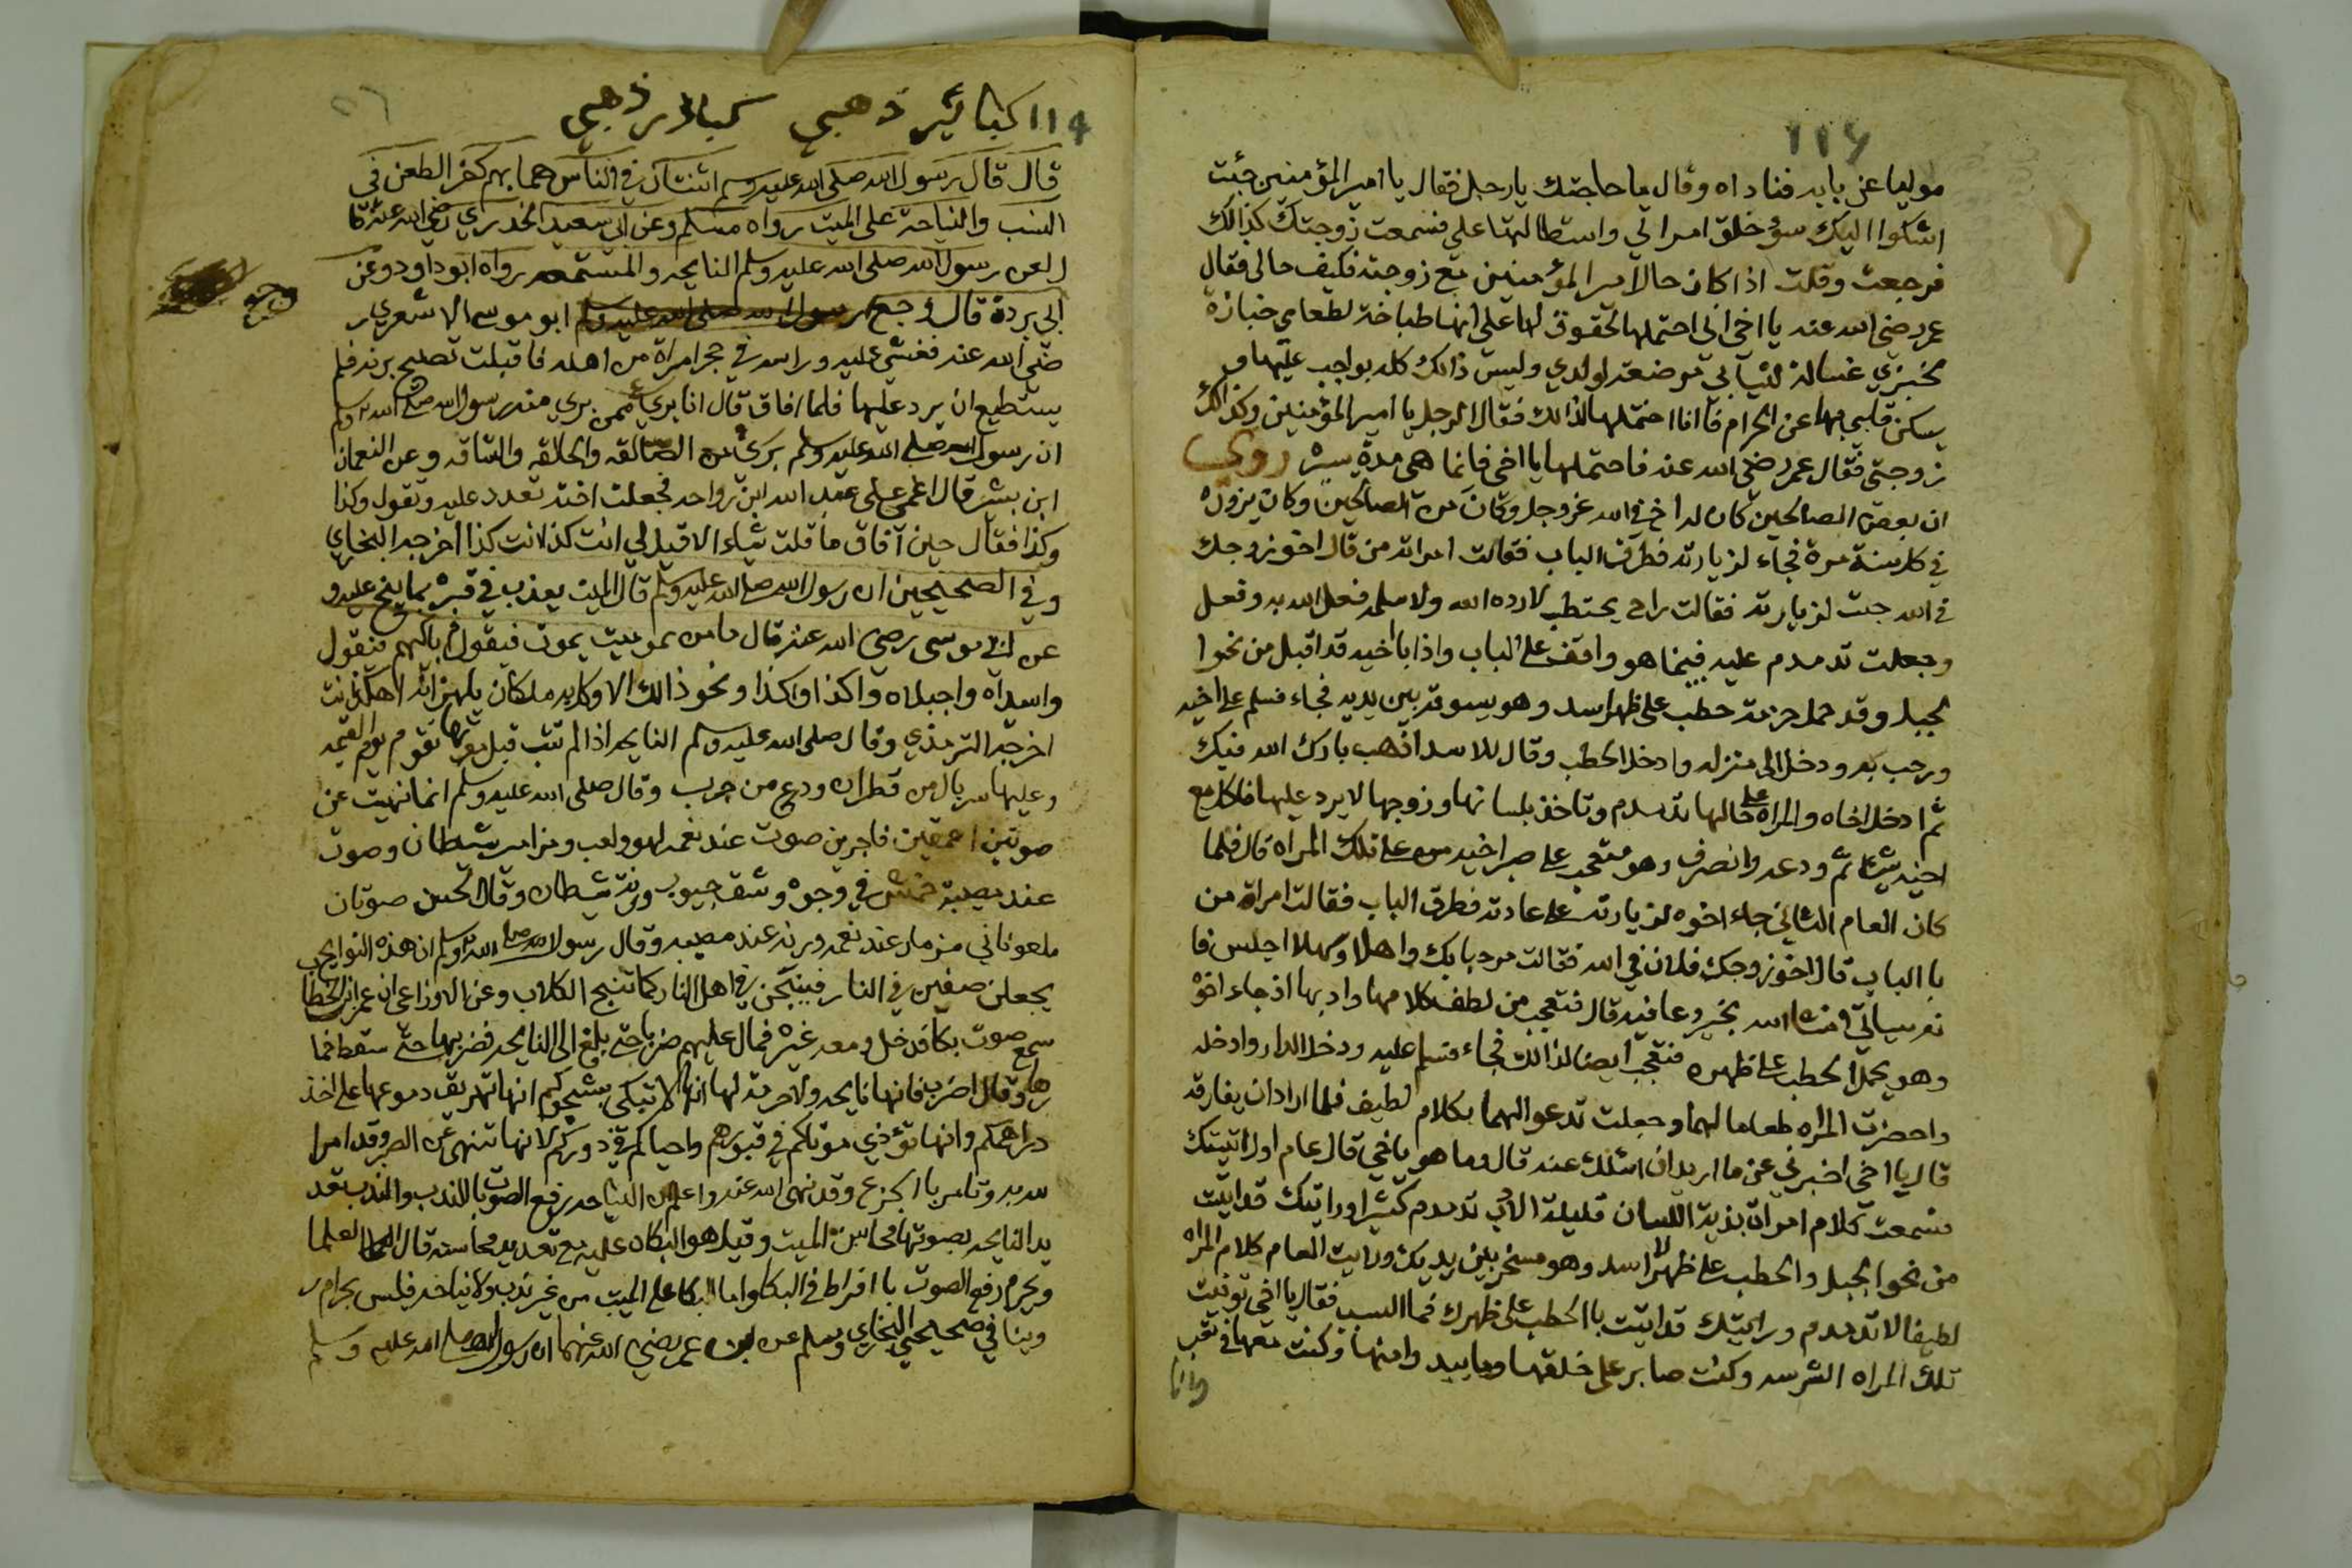 ١١٤
موليا عن بابه فناداه وقال ما حاجتك يا رجل فقال يا امير المؤمنين جئت
اشكوا اليك سؤ خلق امراتي واستطالتها علي فسمعت زوجتك كذالك
فرجعت وقلت اذا كان حال امير المؤمنين مع زوجته فكيف حالي فقال
عمر رضي الله عنه يا اخي اني احتملها لحقوق لها علي انها طباخة لطعامي خبازة
لخبزي غسالة لثيابي مرضعة لولدي وليس ذالك كله بواجب عليها و
يسكن قلبي بها عن الحرام فانا احتملها لذالك فقال الرجل يا امير المؤمنين وكذالك
زوجتي فقال عمر رضي الله عنه فاحتملها يا اخي فانما هي مدة يسيرة روي
ان بعض الصالحين كان له اخ في الله عز وجل وكان من الصالحين وكان يزوره
في كل سنة مرة فجاء لزيارته فطرق الباب فقالت امراته من قال اخو زوجك
في الله جيت لزيارته فقالت راح يحتطب لا رده الله ولا سلمه فعل الله به وفعل
وجعلت تدمدم عليه فبينما هو واقف على الباب واذا باخيه قد اقبل من نحوا
لجبل وقد حمل حزمة حطب على ظهر اسد وهو يسوقه بين يديه فجاء فسلم على اخيه
ورحب به ودخل الى منزله وادخل الحطب وقال للاسد اذهب بارك الله فيك
ثم ادخل اخاه والمراه على حالها تدمدم وتاخذ بلسانها وزوجها لا يرد عليها فاكل مع
اخيه شيئا ثم ودعه وانصرف وهو متعجب على صبر اخيه على تلك المراه قال فلما
كان العام الثاني جاء اخوه لزيارته على عادته فطرق الباب فقالت امراة من
با الباب قال اخو زوجك فلان في الله فقالت مرحبا بك واهلا وسهلا اجلس فا
نه سياتي انشاالله بخير وعافيه قال فتعجب من لطف كلامها وادبها اذ جاء اخوه
وهو يحمل الحطب على ظهره فتعجب ايضا لذالك فجاء فسلم عليه ودخل الدار وادخله
واحضرت المراه طعاما لهما وجعلت تدعو لهما بكلام لطيف فلما اراد ان يفارقه
قال يا اخي اخبرني عن ما اريد ان اسئلك عنه قال وما هو يا اخي قال عام اول اتيتك
فسمعت كلام امراة بذية اللسان قليلة الادب تدمدم كثيرا ورايتك قد اتيت
من نحو الجبل والحطب على ظهر الاسد وهو مسخر بين يديك ورايت العام كلام المراه
لطيفا لا تدمدم ورايتك قد اتيت با الحطب على ظهرك فما السبب فقال يا اخي توفيت
تلك المراه الشرسه وكنت صابر على خلقها وما يبد وامنها وكنت معها في تعب
وانا
١١٤ كبائير ذهبي كبائر ذهبي
قال قال رسول الله صلى الله عليه وسلم اثنتان في الناس هما بهم كفر الطعن في
النسب والنياحة على الميت رواه مسلم وعن ابي سعيد الخدري رضي الله عنه قا
ل لعن رسول الله صلى الله عليه وسلم النايحه والمستمعه رواه ابو داود وعن
ابي بردة قال وجع ابو موسى الاشعري ر
وجع
ضي الله عنه فغشي عليه وراسه في حجر امراة من اهله فاقبلت تصيح برنة فلم
يستطيع ان يرد عليها فلما افاق قال انا بريء ممن بري منه رسول الله صلى الله عليه وسلم
ان رسول الله صلى الله عليه وسلم بري من الصالقه والحالقه والشاقه وعن النعمان
ابن بشير قال اغمي على عبد الله ابن رواحه فجعلت اخته تعدد عليه وتقول وكذا
وكذا فقال حين افاق ما قلت شياء الا قيل لي انت كذا انت كذا اخرجه البخاري
وفي الصحيحين ان رسول الله صلى الله عليه وسلم قال الميت يعذب في قبره بما ينح عليه و
عن ابي موسى رضي الله عنه قال ما من ميت يموت فيقوم باكيهم فتقول
واسيداه واجبلاه واكذا واكذا ونحو ذالك الا وكل به ملكان يلهزانه اهكذا انت
اخرجه الترمذي وقال صلى الله عليه وسلم النايحه اذا لم تتب قبل موتها تقوم يوم القيمه
وعليها سربال من قطران ودرع من جرب وقال صلى الله عليه وسلم انما نهيت عن
صوتين احمقين فاجرين صوت عند نغمه لهو ولعب ومزامير شيطان وصوت
عند مصيبة خمش في وجوه وشق جيوب ورنة شيطان وقال الحسن صوتان
ملعونان مزمار عند نغمه ورنه عند مصيبه وقال رسول الله صلى الله عليه وسلم ان هذه النوايح
يجعلن صفين في النار فينبحن في اهل النار كما تنبح الكلاب وعن الاوزاعي ان عمر ابن الخطاب
سمع صوت بكا فدخل ومعه غيره فمال عليهم ضربا حتى بلغ الى النايحه فضربها حتى سقط خما
رها وقال اضرب فانها نايحه ولا حرمة لها انها لا تبكي بشجوكم انها تهريق دموعها على اخذ
دراهمكم وانها تؤذي موتاكم في قبورهم واحياكم في دوركم لانها تنهى عن الصبر وقد امرا
لله به وتامر باالجزع وقد نهى الله عنه واعلم ان النياحه رفع الصوت باالندب والندب تعد
يد النايحه بصوتها محاسن الميت وقيل هو البكاء عليه مع تعديد محاسنه قال العلما
ويحرم رفع الصوت باافراط في البكا واما البكا على الميت من غير ندب ولا نياحه فليس بحرام ر
وينا في صحيحي البخاري ومسلم عن ابن عمر رضي الله عنهما ان رسول الله صلى الله عليه وسلم